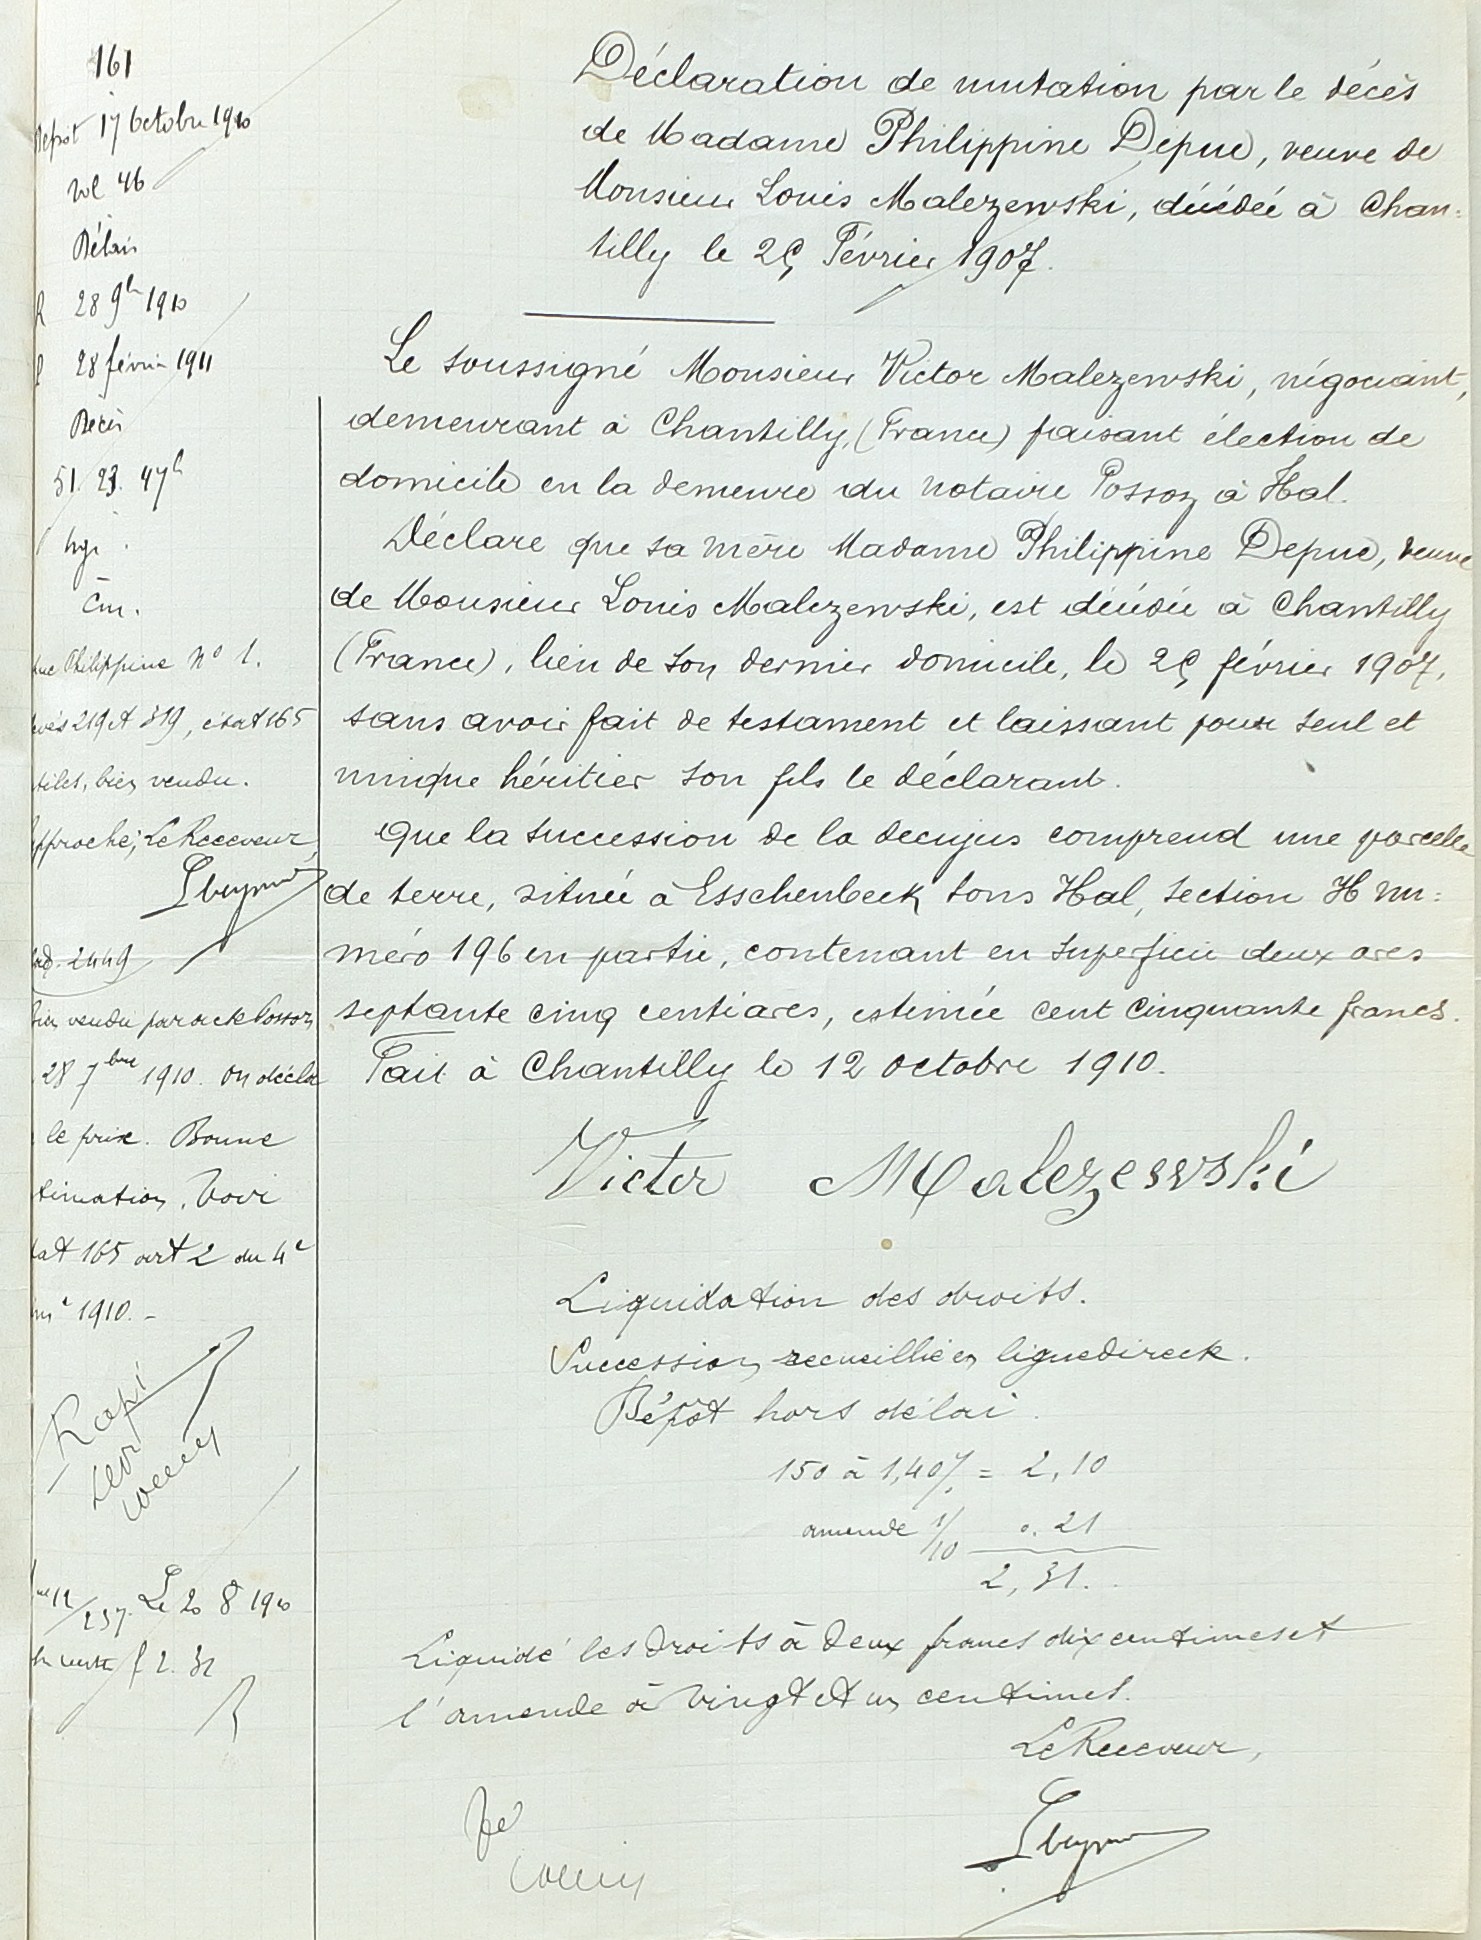 161
Dépôt 17 octobre 1910
vol 46
Délais
28 9b 1910
28 février 1911
Décès
51. 23. 47
Philippine N° 1.
219 et 319, état 165
bien vendu.
Approché; Le Receveur,
2449
bien vendu par acte Possoz
28 7bre 1910. On déclare
le prix. Bonne
estimation. Voir
état 165 art 2 du 4e
1910. -
Le 20 8 1910
f 2.32
Déclaration de mutation par le décès
de Madame Philippine Depue, veuve de
Monsieur Louis Malezewski, décédée à Chan=
tilly le 25 Février 1907.
Le soussigné Monsieur Victor Malezewski, négociant,
demeurant à Chantilly, (France) faisant élection de
domicile en la demeure du notaire Possoz à Hal.
Déclare que sa mère Madame Philippine Depue, veuve
de Monsieur Louis Malezewski, est décédée à Chantilly
(France), lieu de son dernier domicile, le 25 février 1907,
sans avoir fait de testament et laissant pour seul et
unique héritier son fils le déclarant.
Que la succession de la decujus comprend une parcelle
de terre, située à Esschenbeek sous Hal, section H nu=
méro 196 en partie, contenant en superficie deux ares
septante cinq centiares, estimée cent cinquante francs.
Fait à Chantilly le 12 octobre 1910.
Victor Malezewski
Liquidation des droits.
Succession recueillie en ligne directe.
Dépôt hors délai.
150 à 1,40% = 2,10
amende 1/10 0.21
2,31.
Liquidé les droits à deux francs dix centimes et
l'amende à vingt et un centimes.
Le Receveur,